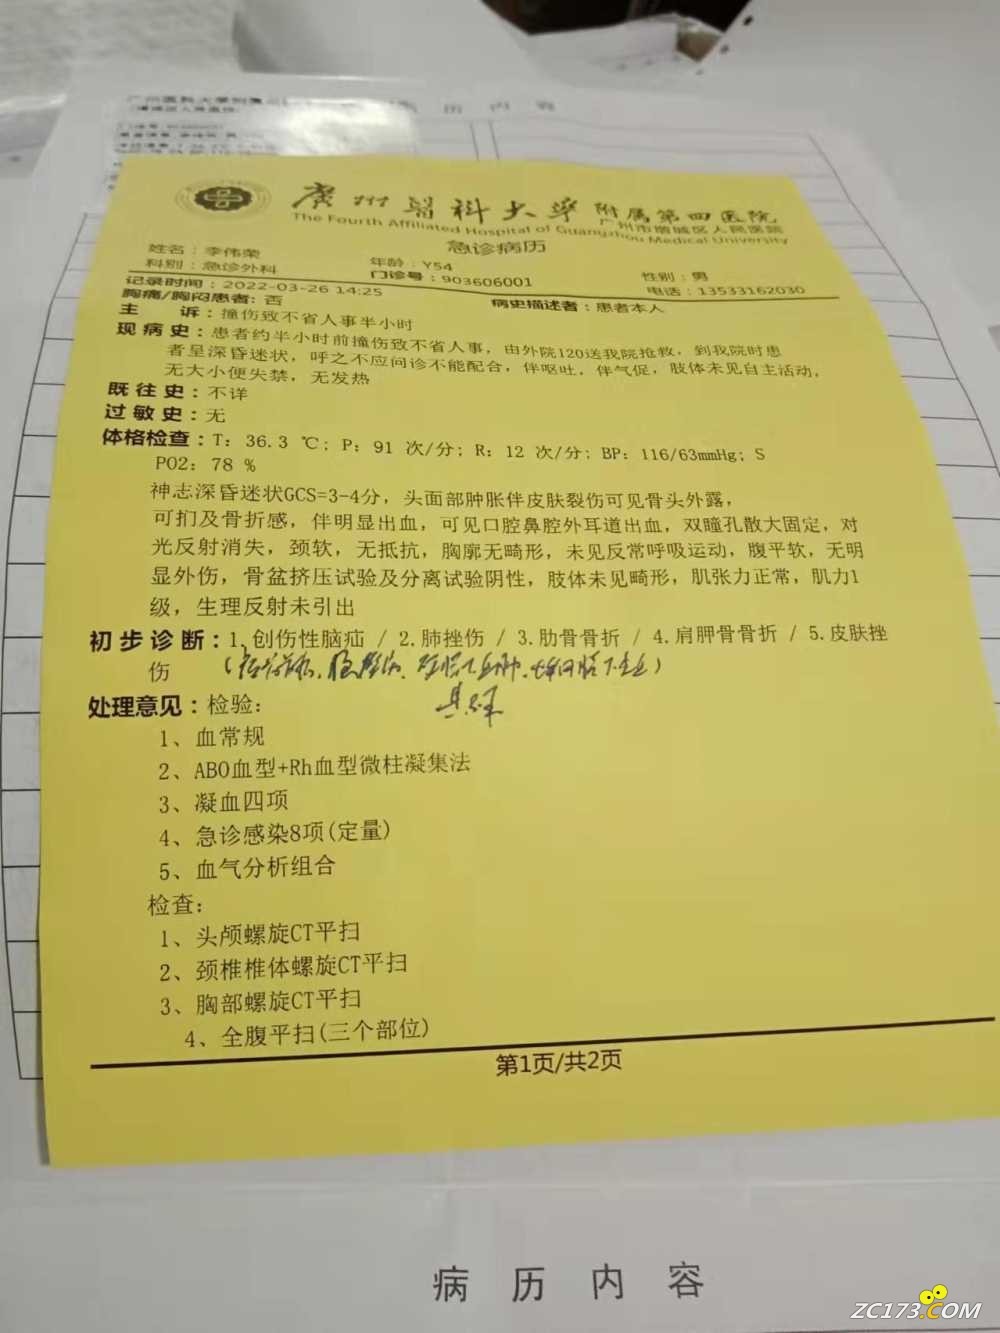 病 历 内 容
廣州醫科大學 附属第四医院
广州市增城区人民医院
The Fourth Affiliated Hospital of Guangzhou Medical University
急诊病历
姓名：李伟荣 年龄：Y54 性别：男
科别：急诊外科 门诊号：903606001 电话：13533162030
记录时间：2022-03-26 14:25 病史描述者：患者本人
胸痛/胸闷患者：否
主 诉：撞伤致不省人事半小时
现 病 史：患者约半小时前撞伤致不省人事，由外院120送我院抢救，到我院时患
者呈深昏迷状，呼之不应问诊不能配合，伴呕吐，伴气促，肢体未见自主活动，
无大小便失禁，无发热
既 往 史：不详
过 敏 史：无
体格检查：T：36.3 ℃；P：91 次/分；R：12 次/分；BP：116/63mmHg；S
PO2：78 %
神志深昏迷状GCS=3-4分，头面部肿胀伴皮肤裂伤可见骨头外露，
可扪及骨折感，伴明显出血，可见口腔鼻腔外耳道出血，双瞳孔散大固定，对
光反射消失，颈软，无抵抗，胸廓无畸形，未见反常呼吸运动，腹平软，无明
显外伤，骨盆挤压试验及分离试验阴性，肢体未见畸形，肌张力正常，肌力1
级，生理反射未引出
初 步 诊 断：1.创伤性脑疝 / 2.肺挫伤 / 3.肋骨骨折 / 4.肩胛骨骨折 / 5.皮肤挫
伤
处理意见：检验：
1、血常规
2、ABO血型+Rh血型微柱凝集法
3、凝血四项
4、急诊感染8项(定量)
5、血气分析组合
检查：
1、头颅螺旋CT平扫
2、颈椎椎体螺旋CT平扫
3、胸部螺旋CT平扫
4、全腹平扫(三个部位)
第1页/共2页
病 历 内 容
ZC173.COM